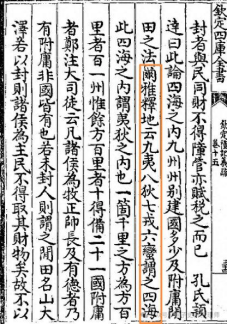 欽定四庫全書
封者與民同財不得障管亦賦稅之而已 孔氏穎
達曰此論四海之内九州州别建國多少及附庸閒
田之法爾雅釋地云九夷八狄七戎六蠻謂之四海
此四海之内謂夷狄之内也一箇千里之方為方百
里者百一州惟餘方百里者十得備二十一國附庸
者鄭注大司徒云凡諸侯為牧正師長及有德者乃
有附庸非國皆有也若未封人則謂之閒田名山大
澤若以封則諸侯為主民不得取其財物矣故不以